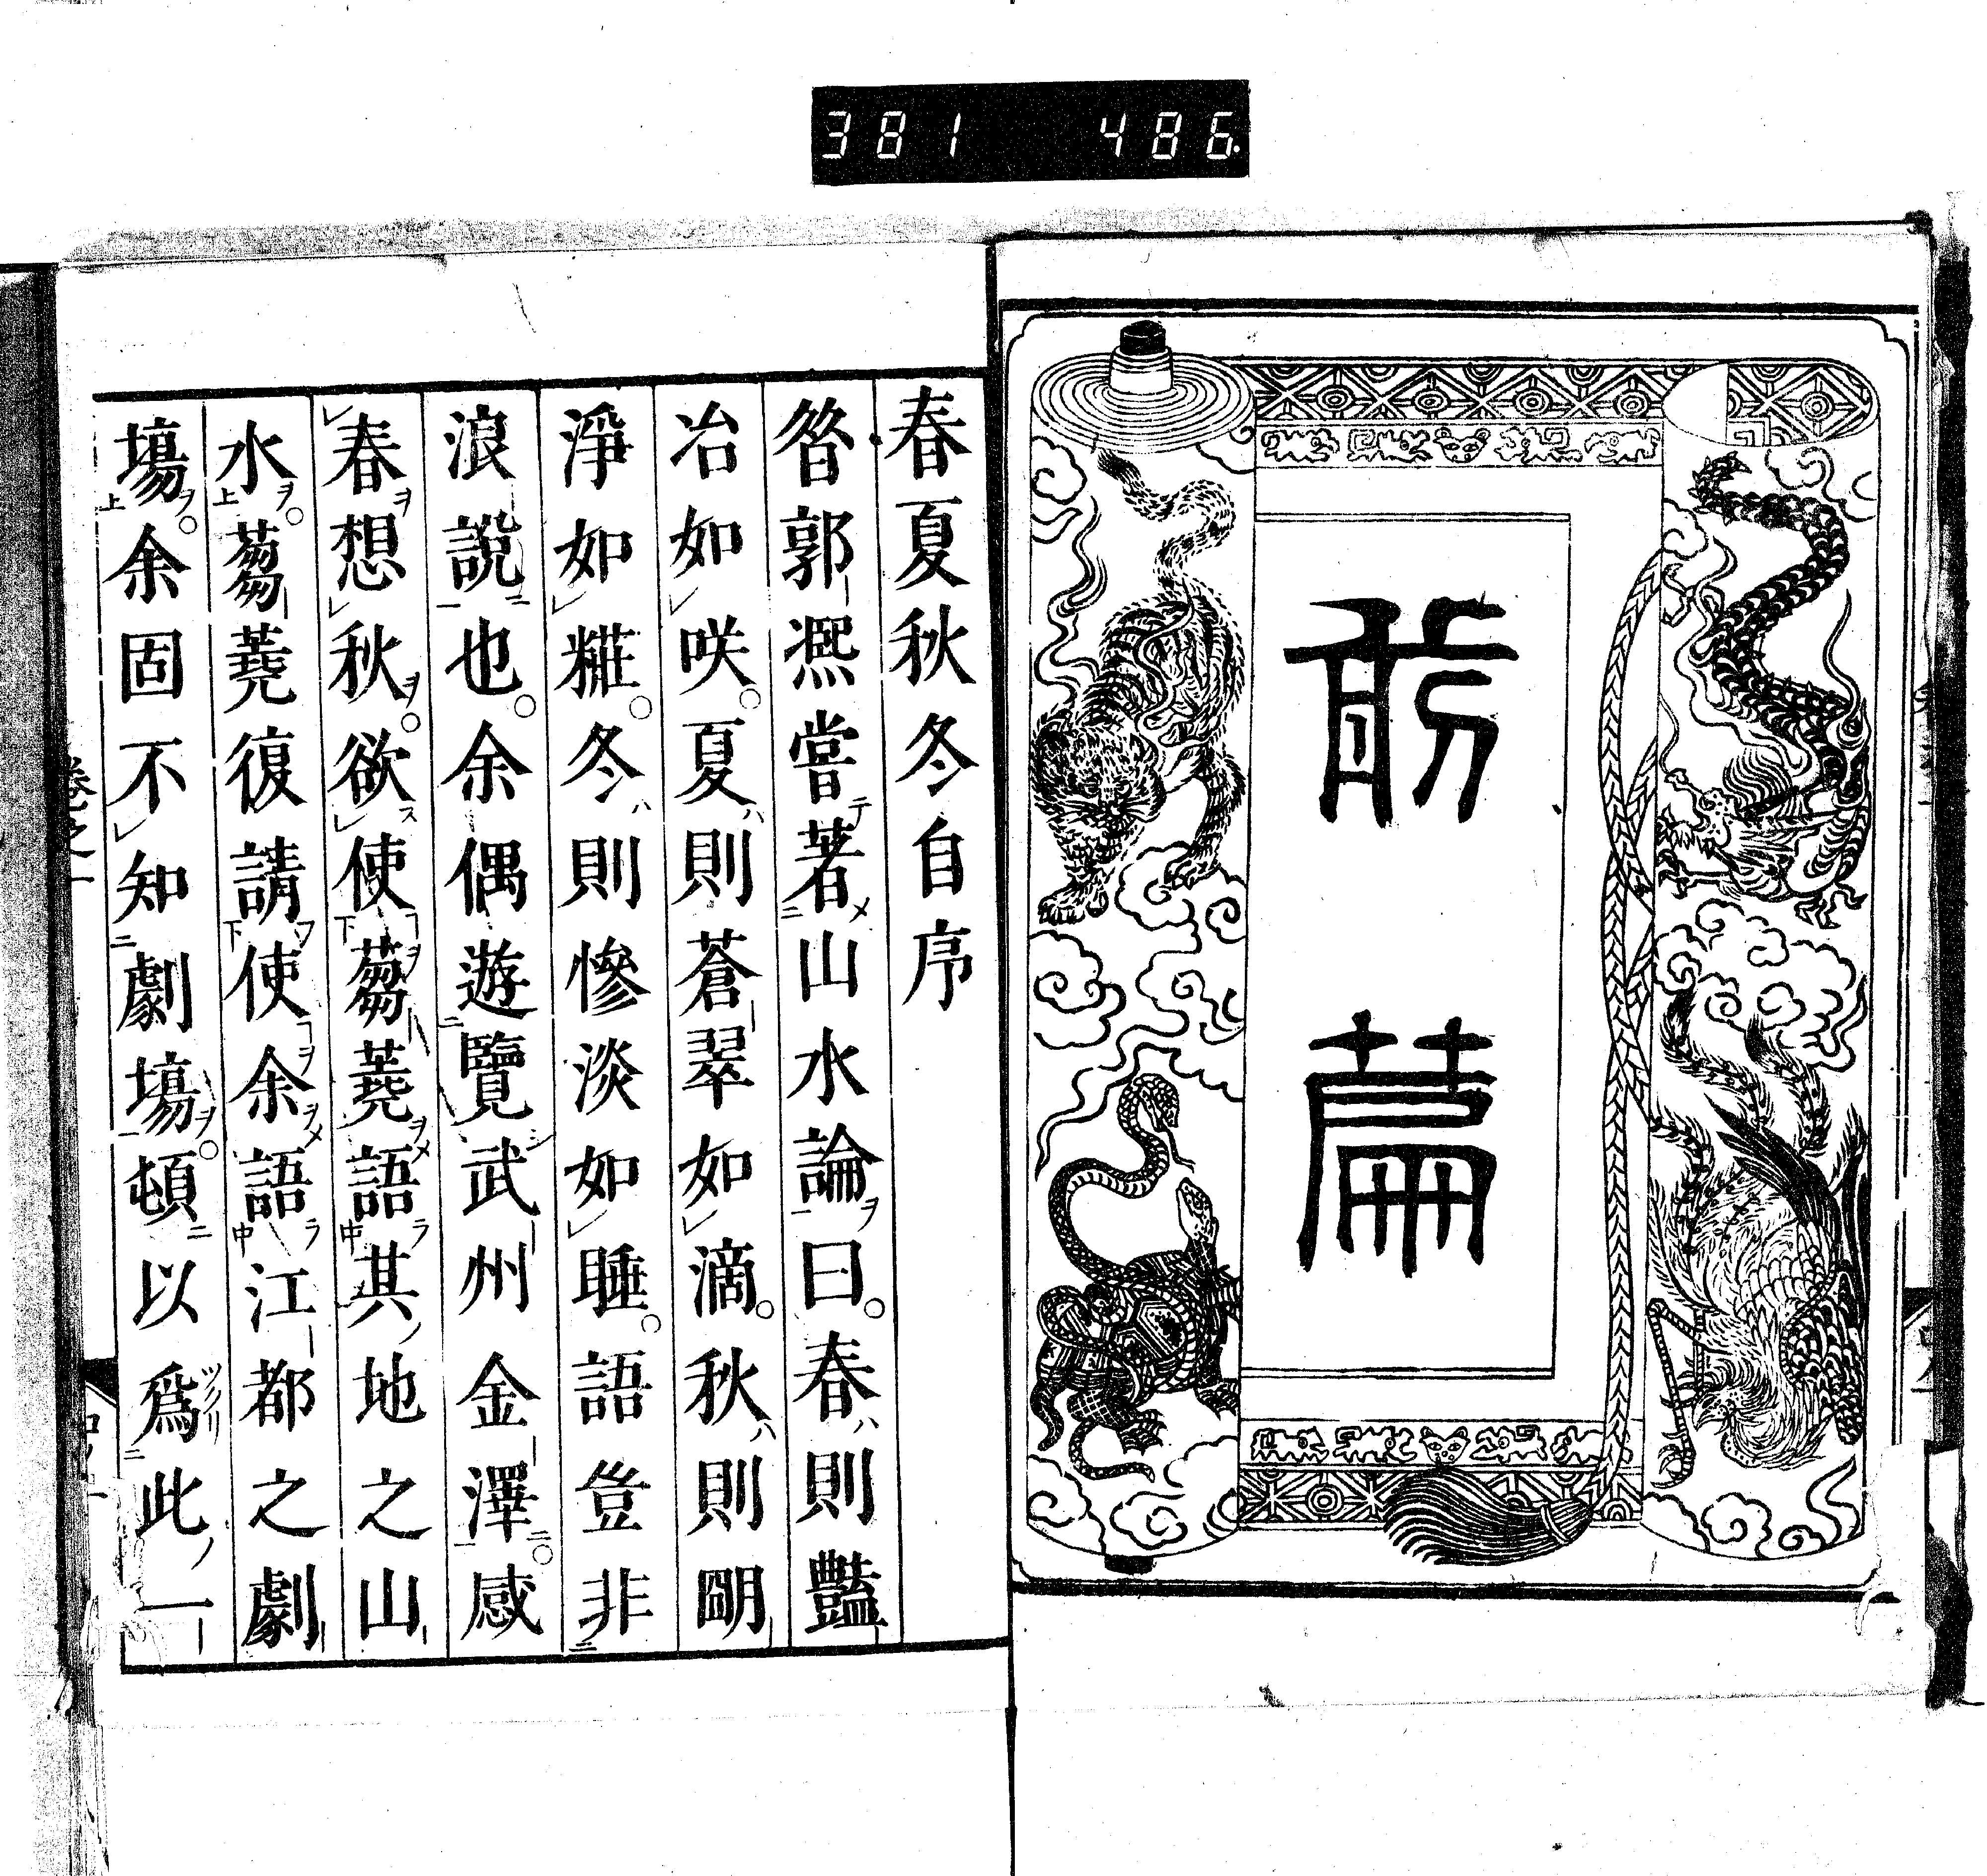 381 486
前篇
春夏秋冬自序
㫺郭凞嘗著山水論曰。春則豔
冶如咲。夏則蒼翠如滴。秋則朙
淨如糚。冬則慘淡如睡。語豈非
浪說也。余偶遊覽武州金澤。感
春想秋。欲使蒭蕘語其地之山
水。蒭蕘復請使余語江都之劇
塲。余固不知劇塲。頓以爲此一